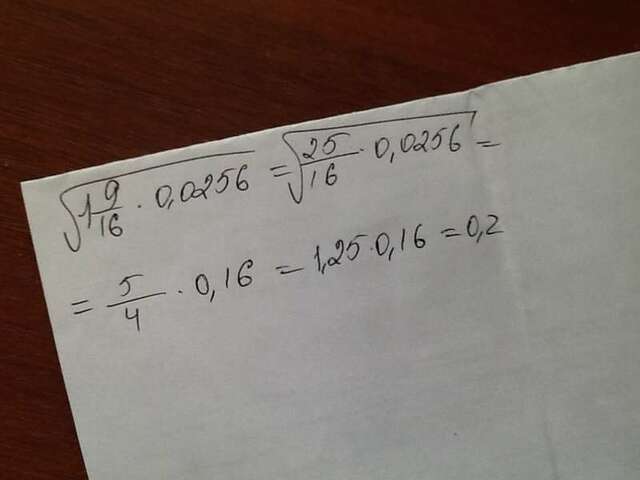 √(1 9/16 · 0,0256) = √(25/16 · 0,0256) =
= 5/4 · 0,16 = 1,25 · 0,16 = 0,2